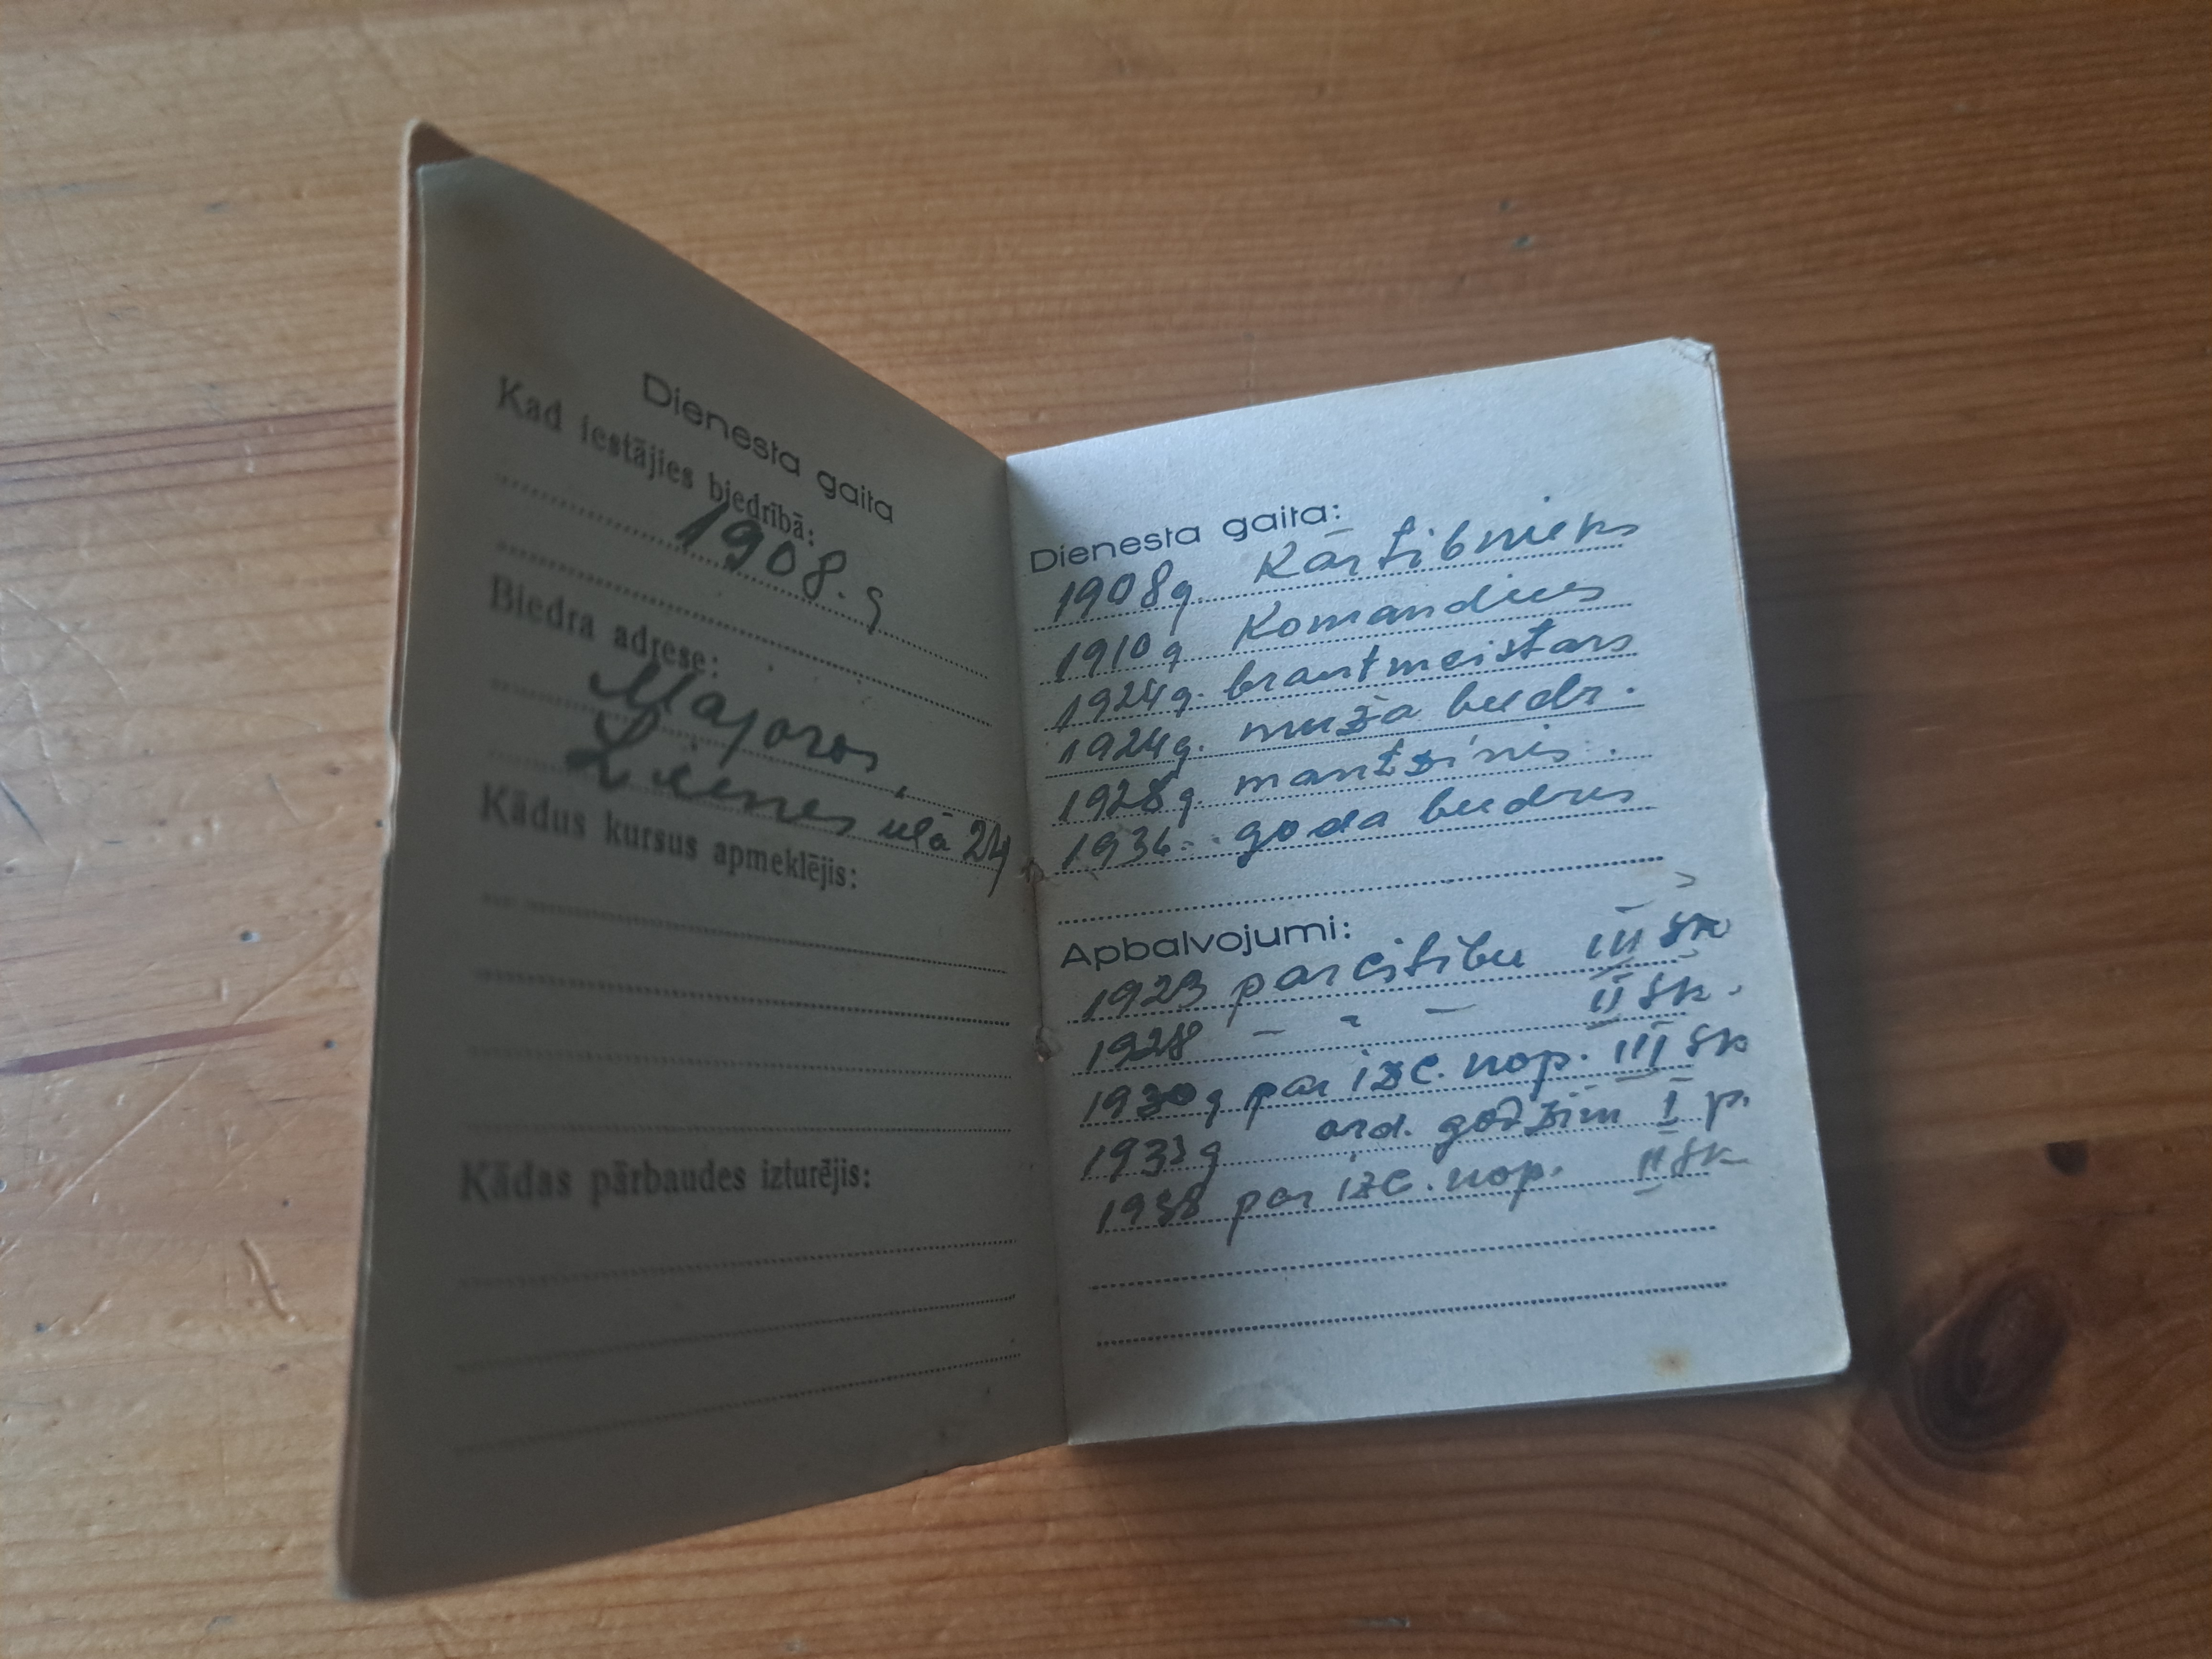 Dienesta gaita
Kad iestājies biedrībā:
1908. g
Biedra adrese:
Majoros,
Lienes ielā 24
Kādus kursus apmeklējis:
Kādas pārbaudes izturējis:
Dienesta gaita:
1908g. Kārtibnieks
1910g Komandieris
1924g. brantmeistars
1924g. muža biedr.
1928g. mantzinis.
1936. goda biedris
Apbalvojumi:
1923 par citibu III šk
1928 – " – II šk.
1930g par izc. nop. III šk
1933g ord. godzim I p.
1938 par izc. nop. II šk